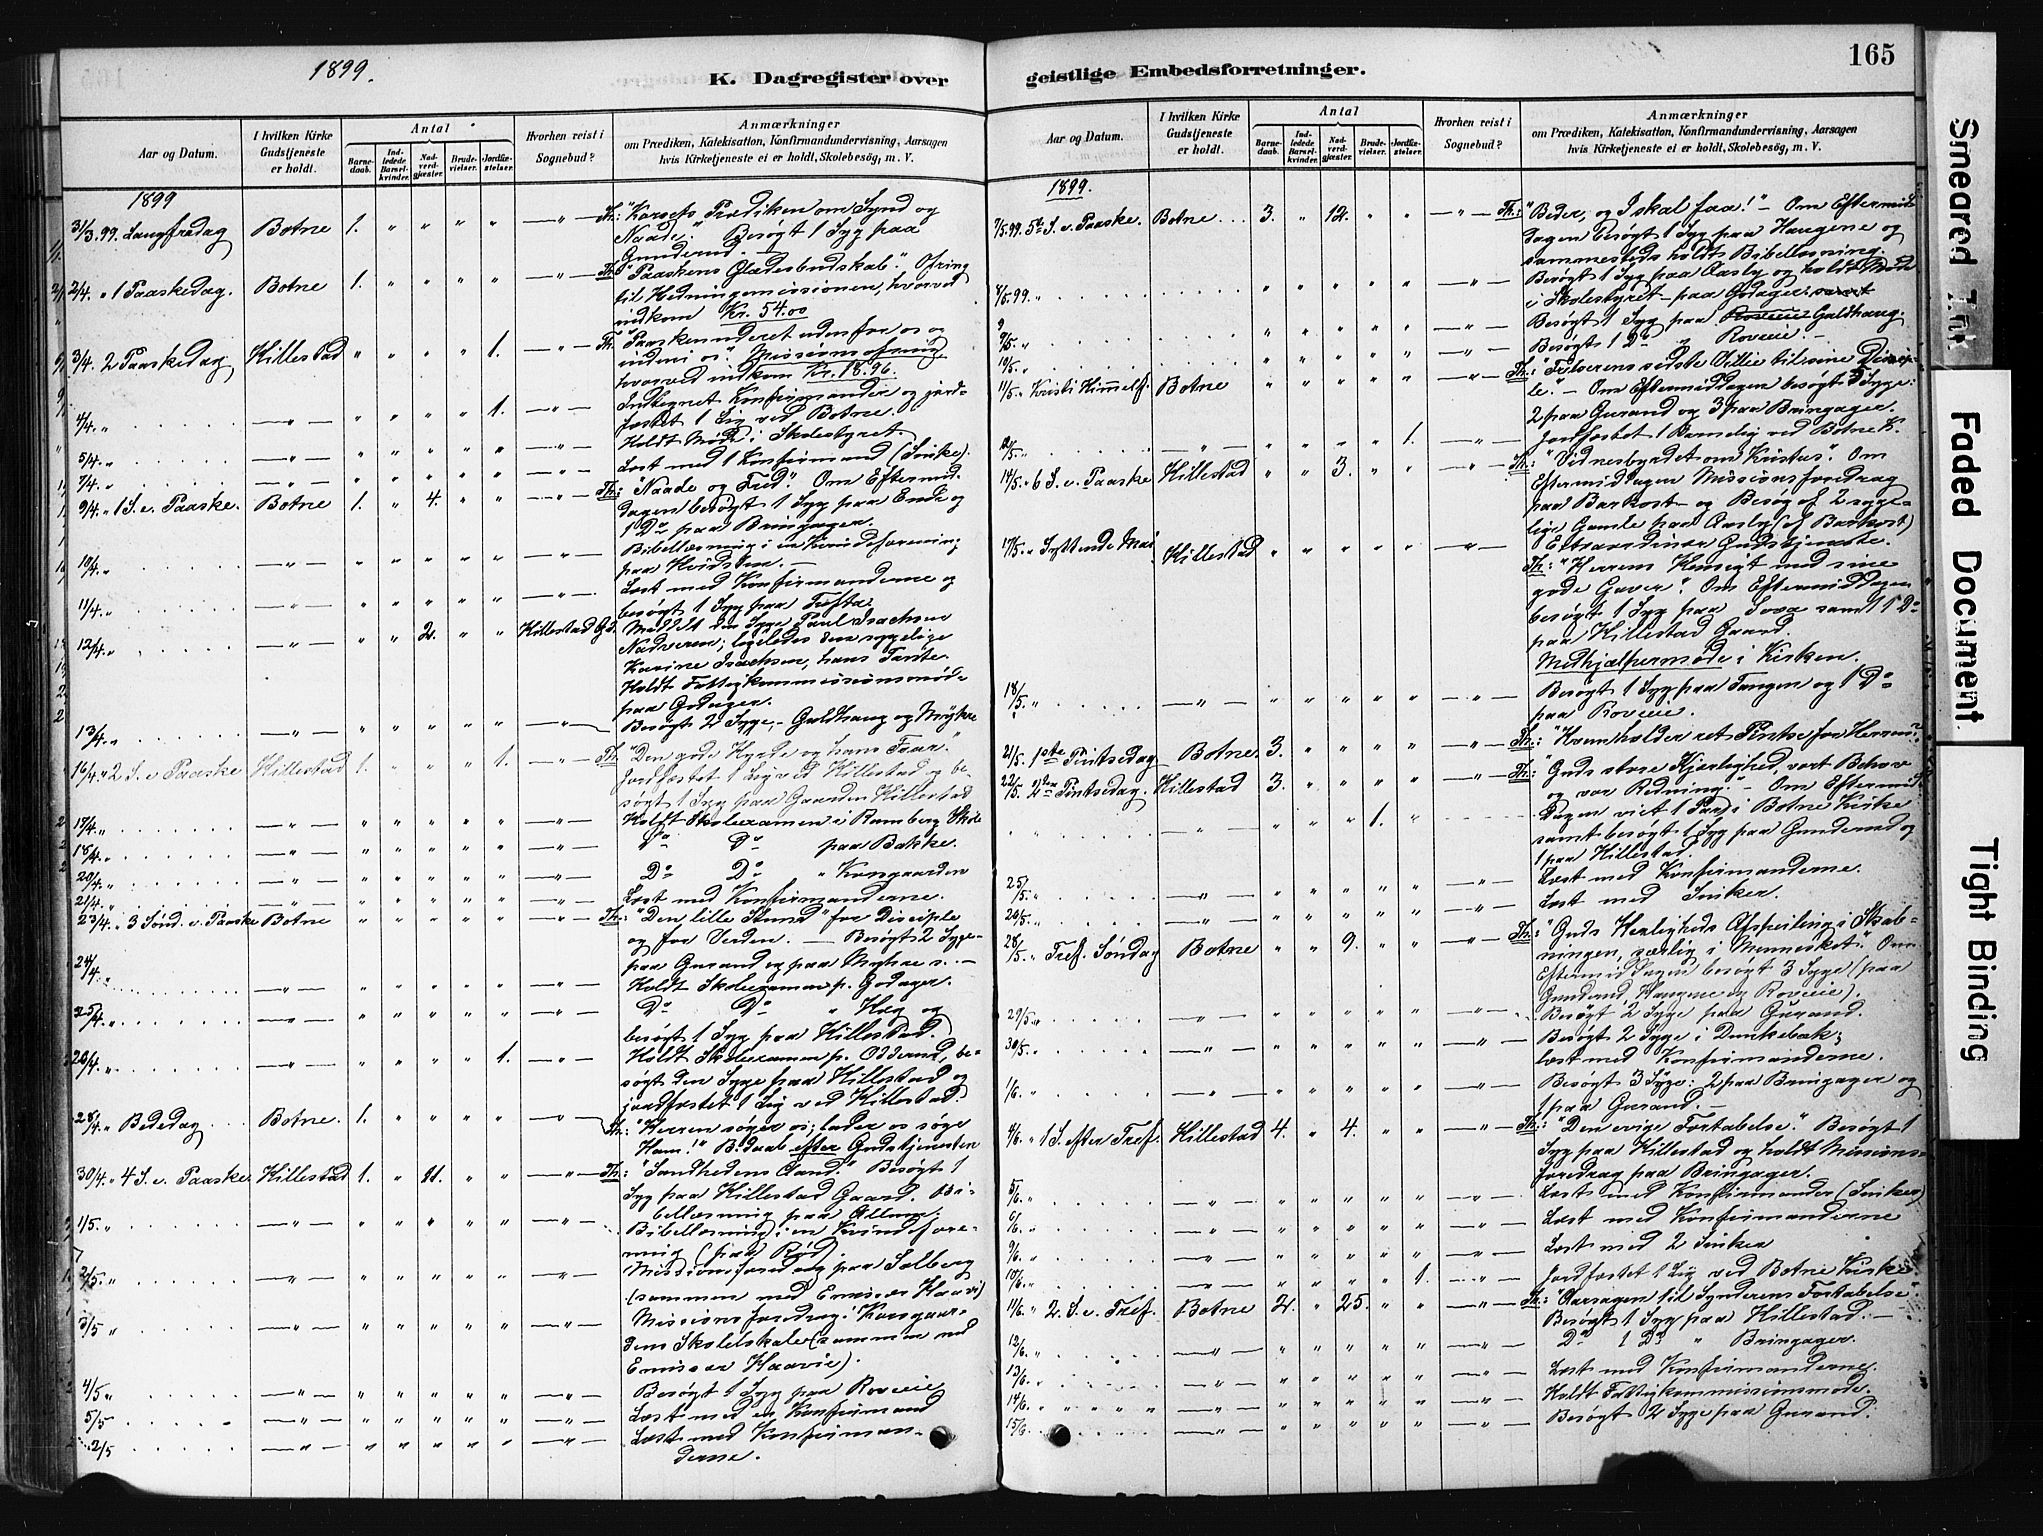 165
1899.
K. Dagregister over
geistlige Embedsforretninger.
Aar og Datum.
I hvilken Kirke Gudstjeneste er holdt.
Antal
Barne-daab.
Ind-ledede Barsel-kvinder.
Nad-verd-gjæster.
Brude-vielser.
Jordfæ-stelser.
Hvorhen reist i Sognebud?
Anmærkninger
om Prædiken, Katekisation, Konfirmandundervisning, Aarsagen
hvis Kirketjeneste ei er holdt, Skolebesøg, m. V.
1899
31/3.99. Langfredag Botne 1. " " " " — " — Th: "Korsets Prædiken om Synd og
Naade." Besøgt 1 Syg paa
Gunderud. —
2/4. " 1 Paaskedag. Botne 1. " " " " — " — Th: "Paaskens Glædesbudskab". Ofring
til Hedningemissionen, hvorved
indkom Kr. 54.00
3/4. 2 Paaskedag Hillestad " " " " 1. — " — Th: "Paaskeunderet udenfor os og
indeni os". Missionsofring,
hvorved indkom Kr. 18.96.
4/4. " — " — " " " " 1. — " — Indtegnet Konfirmander og jord-
fæstet 1 Lig ved Botne.
5/4. " — " — " " " " " — " — Holdt Møde i Skolestyret.
7/4. " — " — " " " " " — " — Læst med 1 Konfirmand (Sinke).
9/4. " 1 S. e. Paaske. Botne 1. " 4. " " — " — Th: "Naade og Fred". Om Eftermid.
dagen besøgt 1 Syg paa Ende og
1 Do paa Bringager.
10/4. " — " — " " " " " — " — Bibellæsning i en Kvindeforening
paa Kvidsten. —
11/4. " — " — " " " " " — " — Læst med Konfirmanderne og
besøgt 1 Syg paa Tufte.
12/4. " — " — " " 2. " " Hillestad Gd. Meddelt den syge Paul Isachsen
Nadveren; ligeledes den sygelige
Karine Isachsen, hans Tante.
Holdt Fattigkommissionsmøde
paa Godager.
13/4. " — " — " " " " " — " — Besøgt 2 Syge, — Guldhaug og Myhre
16/4. " 2 S. e. Paaske Hillestad 1. " " " 1. — " — Th: "Den gode Hyrde og hans Faar."
Jordfæstet 1 Lig ved Hillestad og be-
søgt 1 Syg paa Gaarden Hillestad
17/4. " — " — " " " " " — " — Holdt Skoleexamen i Ramberg Skole
18/4. " — " — " " " " " — " — Do Do paa Bakke.
20/4. " — " — " " " " " — " — Do Do " Korsgaarden
21/4. " — " — " " " " " — " — Læst med Konfirmanderne.
23/4. " 3 Sønd. e. Paaske Botne " " " " " — " — Th: "Den lille Stund" for Disciple
og for Verden. — Besøgt 2 Syge —
paa Gurand og paa Myhre s. —
24/4. " — " — " " " " " — " — Holdt Skoleexamen p. Godager.
25/4. " — " — " " " " " — " — Do Do " Høg og
besøgt 1 Syg paa Hillestad.
26/4. " — " — " " " " 1. — " — Holdt Skoleexamen p. Odderud, be-
søgt den Syge paa Hillestad og
jordfæstet 1 Lig ved Hillestad.
28/4. " Bededag Botne. 1. " " " " " Th: "Herren søger os; lader os søge
Ham!" B.daab efter Gudstjenesten
30/4. " 4 S. e. Paaske. Hillestad 1. " 11. " " — " — Th: "Sandhedens Aand." Besøgt 1
Syg paa Hillestad Gaard. Bi-
bellæsning paa Ellum.
1/5. " — " — " " " " " — " — Bibellæsning i en Kvindefore-
ning (paa Rød).
2/5. " — " — " " " " " — " — Missionsforedrag paa Solberg
(sammen med Emissær Haavi)
3/5 " — " — " " " " " — " — Missionsforedrag i Korsgaar-
dens Skolelokale (sammen med
Emissær Haavie).
4/5 " — " — " " " " " — " — Besøgt 1 Syg paa Roveie
5/5 — " — " " " " " — " — Læst med en Konfirmand
2/5 — " — " " " " " — " — Læst med Konfirman-
derne.
Aar og Datum.
I hvilken Kirke Gudstjeneste er holdt.
Antal
Barne-daab.
Ind-ledede Barsel-kvinder.
Nad-verd-gjæster.
Brude-vielser.
Jordfæ-stelser.
Hvorhen reist i Sognebud?
Anmærkninger
om Prædiken, Katekisation, Konfirmandundervisning, Aarsagen
hvis Kirketjeneste ei er holdt, Skolebesøg, m. V.
1899.
7/5.99. 5te S. e. Paaske. Botne 3. " 12. " " — " — Th: "Beder, og I skal faa!" — Om Eftermid-
dagen besøgt 1 Syg paa Haugene og
sammesteds holdt Bibellæsning.
8/5.99. " " " " " " — " — Besøgt 1 Syg paa Aasly og holdt Møde
i Skolestyret — paa Godager
9/5. " " " " " " — " — Besøgt 1 Syg paa Guldhaug.
10/5. " " " " " " — " — Besøgt 1 Do " Roveie. —
11/5. " Kristi Himmelf. Botne " " " " " — " — Th: "Frelserens sidste Villie til sine Discip-
le". — Om Eftermiddagen besøgt 5 Syge:
2 paa Gurand og 3 paa Bringager.
12/5. " — " — " " " " 1. — " — Jordfæstet 1 Barnelig ved Botne K.
14/5. " 6 S. e. Paaske Hillestad " " 3. " " — " — Th: "Vidnesbyrdet om Kristus". Om
Eftermiddagen Missionsforedrag
paa Barkost — og Besøg af 2 syge-
lige Gamle paa Aasly (af Barkost)
17/5. " Syttende Mai Hillestad " " " " " — " — Extraordinær Gudstjeneste.
Th: "Herrens Hensigt med sine
gode Gaver". Om Eftermiddagen
besøgt 1 Syg paa samt 1 Do
paa Hillestad Gaard.
Medhjælpermøde i Kirken.
18/5. " — " — " " " " " — " — Besøgt 1 Syg paa Tangen og 1 Do
paa Roveie.
21/5. " 1ste Pintsedag Botne 3. " " " " — " — Th: "Hvem holder ret Pintse for Herren?"
22/5. " 2den Pintsedag. Hillestad 3. " " " " — " — Th: "Guds store Kjærlighed, vort Behov
og vor Redning." — Om Eftermid-
" " — " — " " " 1. " dagen viet 1 Par i Botne Kirke
samt besøgt 1 Syg paa Gunderud og
1 paa Hillestad.
25/5. " — " — " " " " " — " — Læst med Konfirmanderne.
26/5. " — " — " " " " " — " — Læst med Sinker.
28/5. " Tref. Søndag Botne " " 9. " " — " — Th: "Guds Herligheds Afspeiling i Skab-
ningen, særlig i Mennesket." Om
Eftermiddagen besøgt 3 Syge (paa
Gunderud, Haugene og Roveie).
29/5. " — " — " " " " " — " — Besøgt 2 Syge paa Gurand.
30/5. " — " — " " " " " — " — Besøgt 2 Syge i Dunkebæk;
læst med Konfirmanderne.
1/6. " — " — " " " " " — " — Besøgt 3 Syge: 2 paa Bringager og
1 paa Gurand. —
4/6. " 1 S. efter Tref. Hillestad 4. " 4. " " — " — Th: "Den evige Fortabelse." Besøgt 1
Syg paa Hillestad og holdt Missions-
foredrag paa Bringager.
5/6. " — " — " " " " " — " — Læst med Konfirmander (Sinker)
6/6. " — " — " " " " " — " — Læst med Konfirmanderne
9/6. " — " — " " " " " — " — Læst med 2 Sinker
10/6. " — " — " " " " 1. — " — Jordfæstet 1 Lig ved Botne Kirke
11/6. " 2. S. e. Tref. Botne 2. " 25. " " — " — Th: "Aarsagen til Synderens Fortabelse".
Besøgt 1 Syg paa Hillestad. —
12/6. " — " — " " " " " — " — Do 1 Do " Bringager.
13/6. " — " — " " " " " — " — Læst med Konfirmanderne.
14/6. " — " — " " " " " — " — Holdt Fattigkommissionsmøde.
15/6. — " — " " " " " — " — Besøgt 2 Syge paa Gurand.
Smeared Ink
Faded Document
Tight Binding